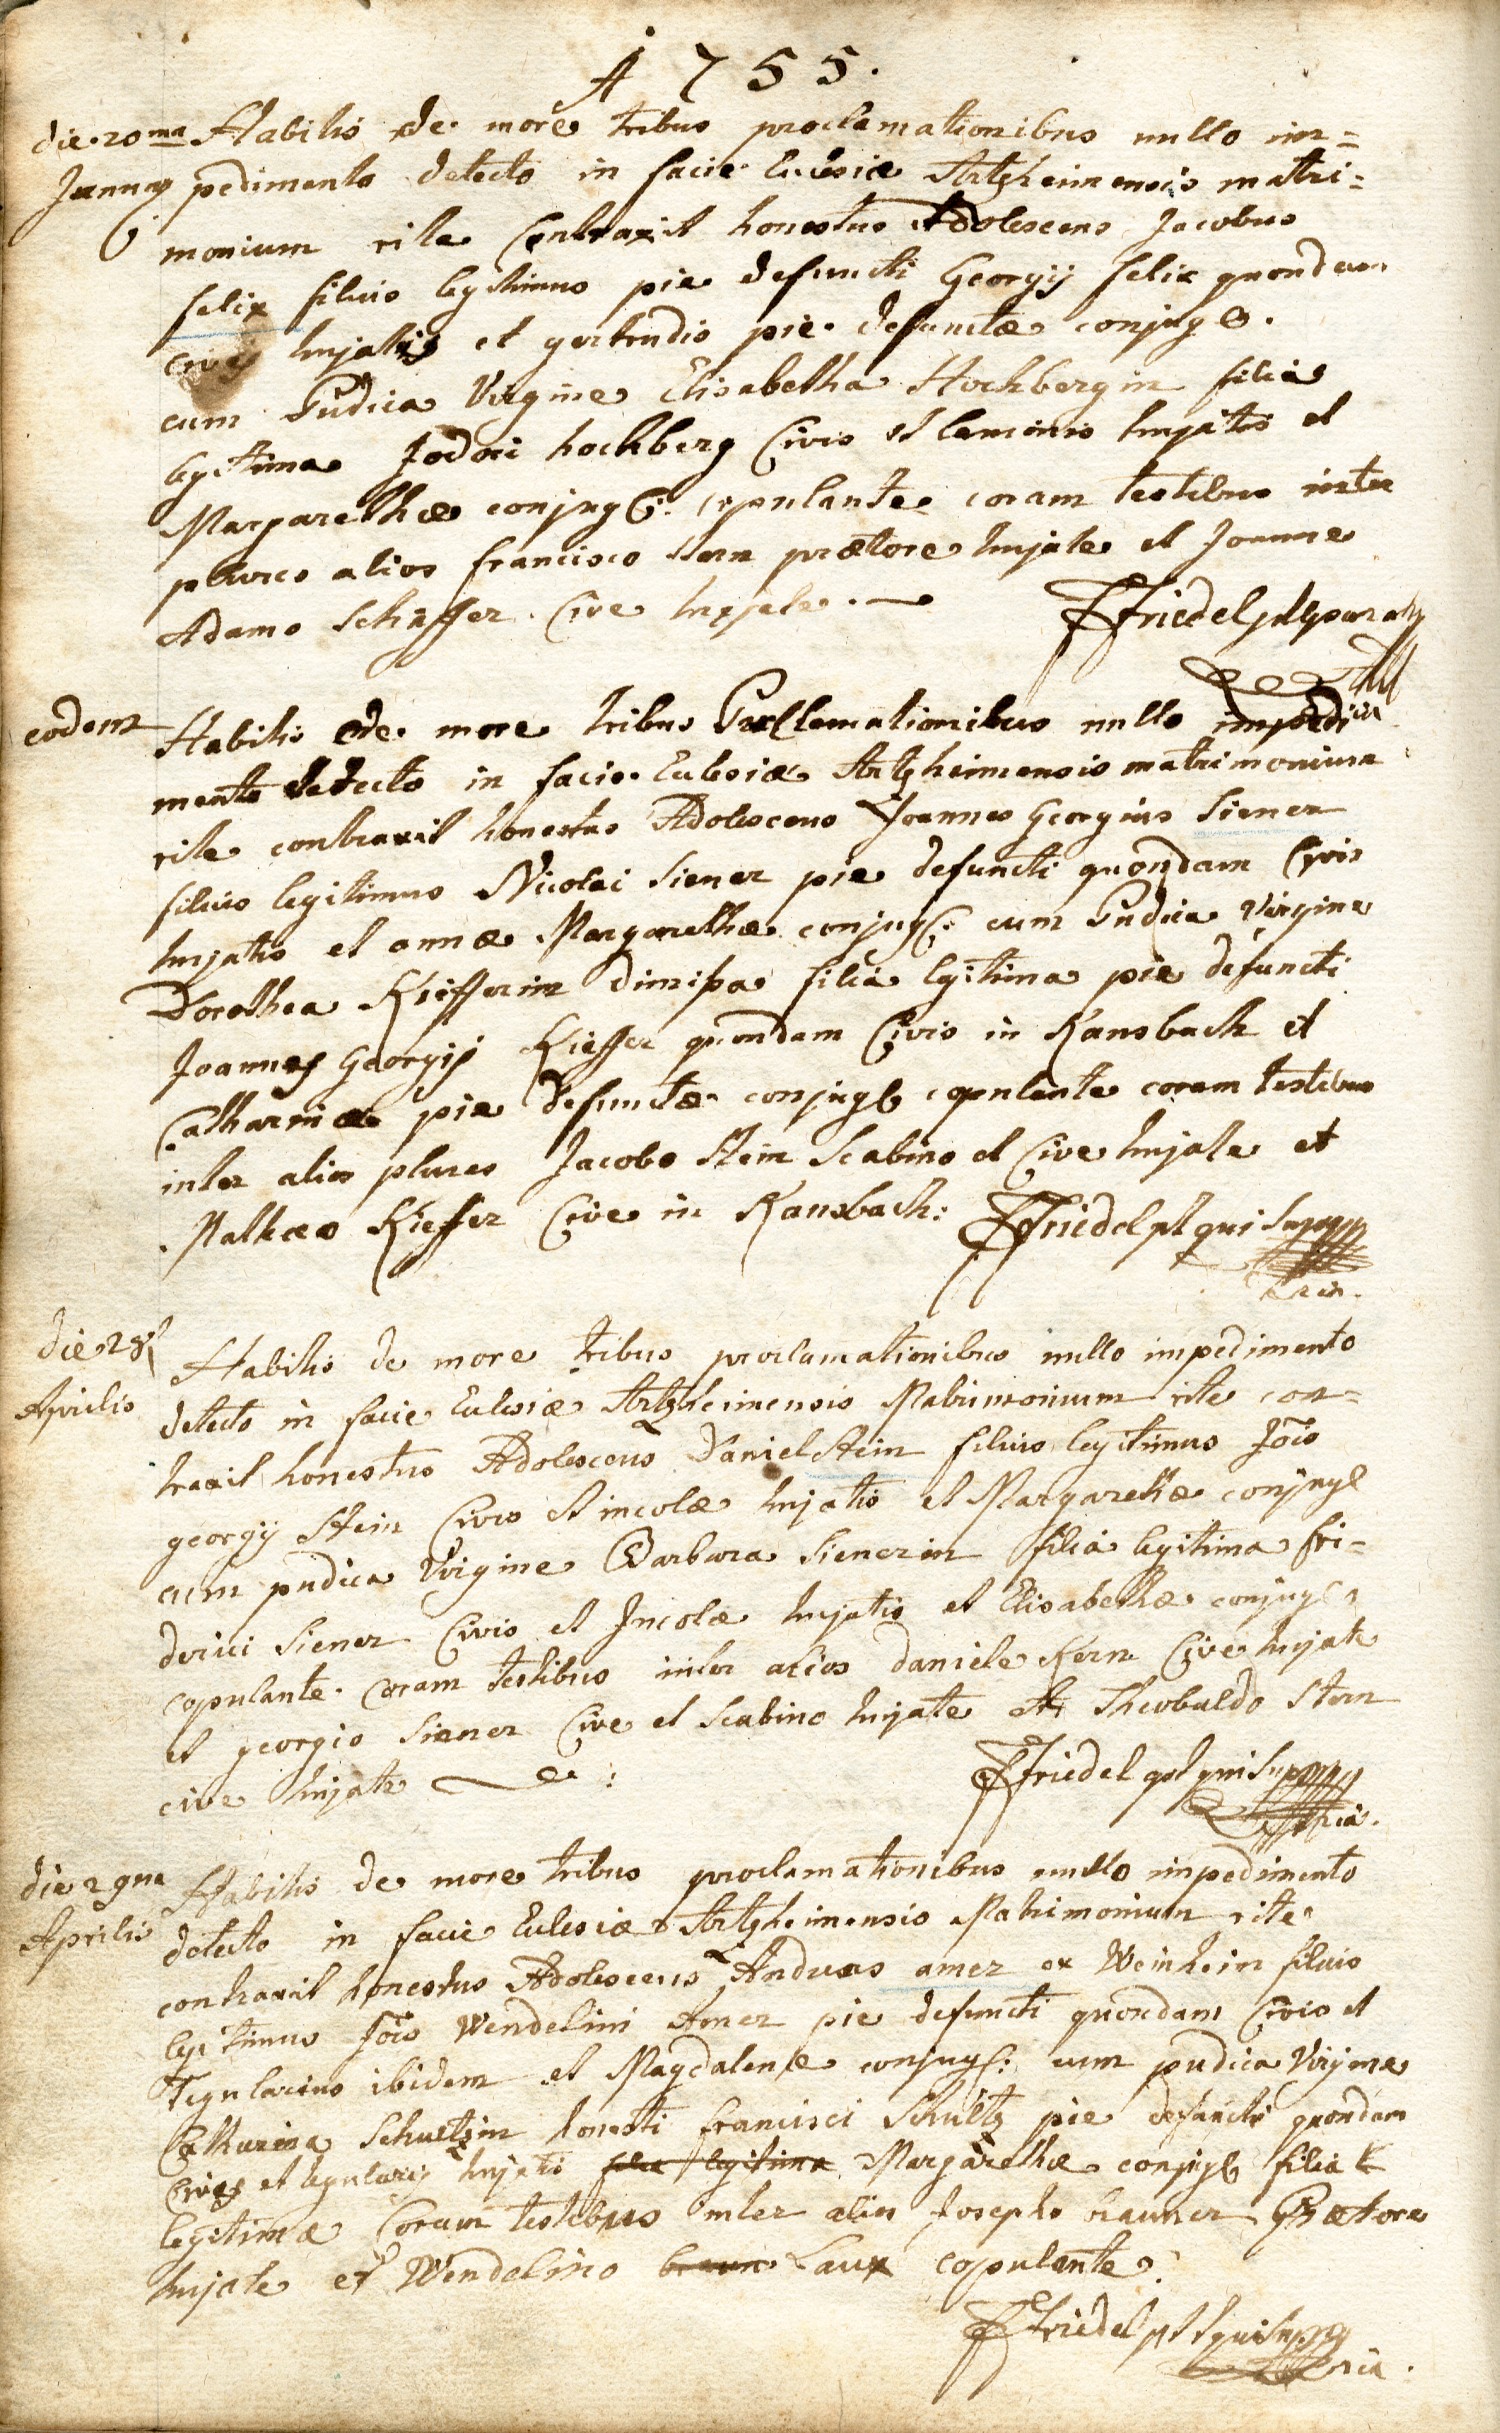 A 1755.
die 20ma Habitis de more tribus proclamationibus nullo im=
Januarij pedimento detecto in facie Ecclesiæ Artzheimensis matri=
monium rite Contraxit honestus Adolescens Jacobus
felix filius legitimus pie defuncti Georgij felix quondam
civis hujatis et gertrudis pie defunctæ conjug
cum Pudica Virgine Elisabetha Hochbergin filia
legitima Jodoci hochberg Civis et hujatis et
Margarethæ conjug: copulante coram testibus inter
plures alios francisco Stern prætore hujate et Joanne
Adamo Schäffer Cive hujate.
Friedel
eodem Habitis de more tribus Proclamationibus nullo impedi
mento detecto in facie Ecclesiæ Artzheimensis matrimonium
rite contraxit honestus Adolescens Joannes Georgius Siener
filius legitimus Nicolai Siener pie defuncti quondam Civis
hujatis et annæ Margarethæ conjug: cum Pudica Virgine
Dorothea Kiefferin dimissa filia legitima pie defuncti
Joannis Georgij Kieffer quondam Civis in Ransbach et
Catharinæ pie defunctæ conjug copulante coram testibus
inter alios plures Jacobo Stein Scabino et Cive hujate et
Mathæo Kieffer Cive in Ransbach:
Friedel pt qui supra
die 28 Habitis de more tribus proclamationibus nullo impedimento
Aprilis detecto in facie Ecclesiæ Artzheimensis Matrimonium rite con=
traxit honestus Adolescens Daniel Stein filius legitimus Jois
georgij Stein Civis et incolæ hujatis et Margarethæ conjug
cum pudica Virgine Barbara Sienerin filia legitima fri=
derici Siener Civis et Incolæ hujatis et Elisabethæ conjug
copulante coram testibus inter alios daniele Kern Cive hujate
et georgio Siener Cive et Scabino hujate et Theobaldo Stern
cive hujate
Friedel qui supra
die 29na Habitis de more tribus proclamationibus nullo impedimento
Aprilis detecto in facie Ecclesiæ Artzheimensis Matrimonium rite
contraxit honestus Adolescens Andreas amer ex Weinheim filius
legitimus Jois Wendelini Amer pie defuncti quondam Civis et
Tegularius ibidem et Magdalenæ conjug: cum pudica Virgine
Catharina Schultzin honesti francisci Schultz pie defuncti quondam
Civis et tegularij hujatis filia legitima Margarethæ conjug filia
legitimæ Coram testibus inter alios Josepho Prætore
hujate et Wendelino Laux copulante
Friedel pt qui supra